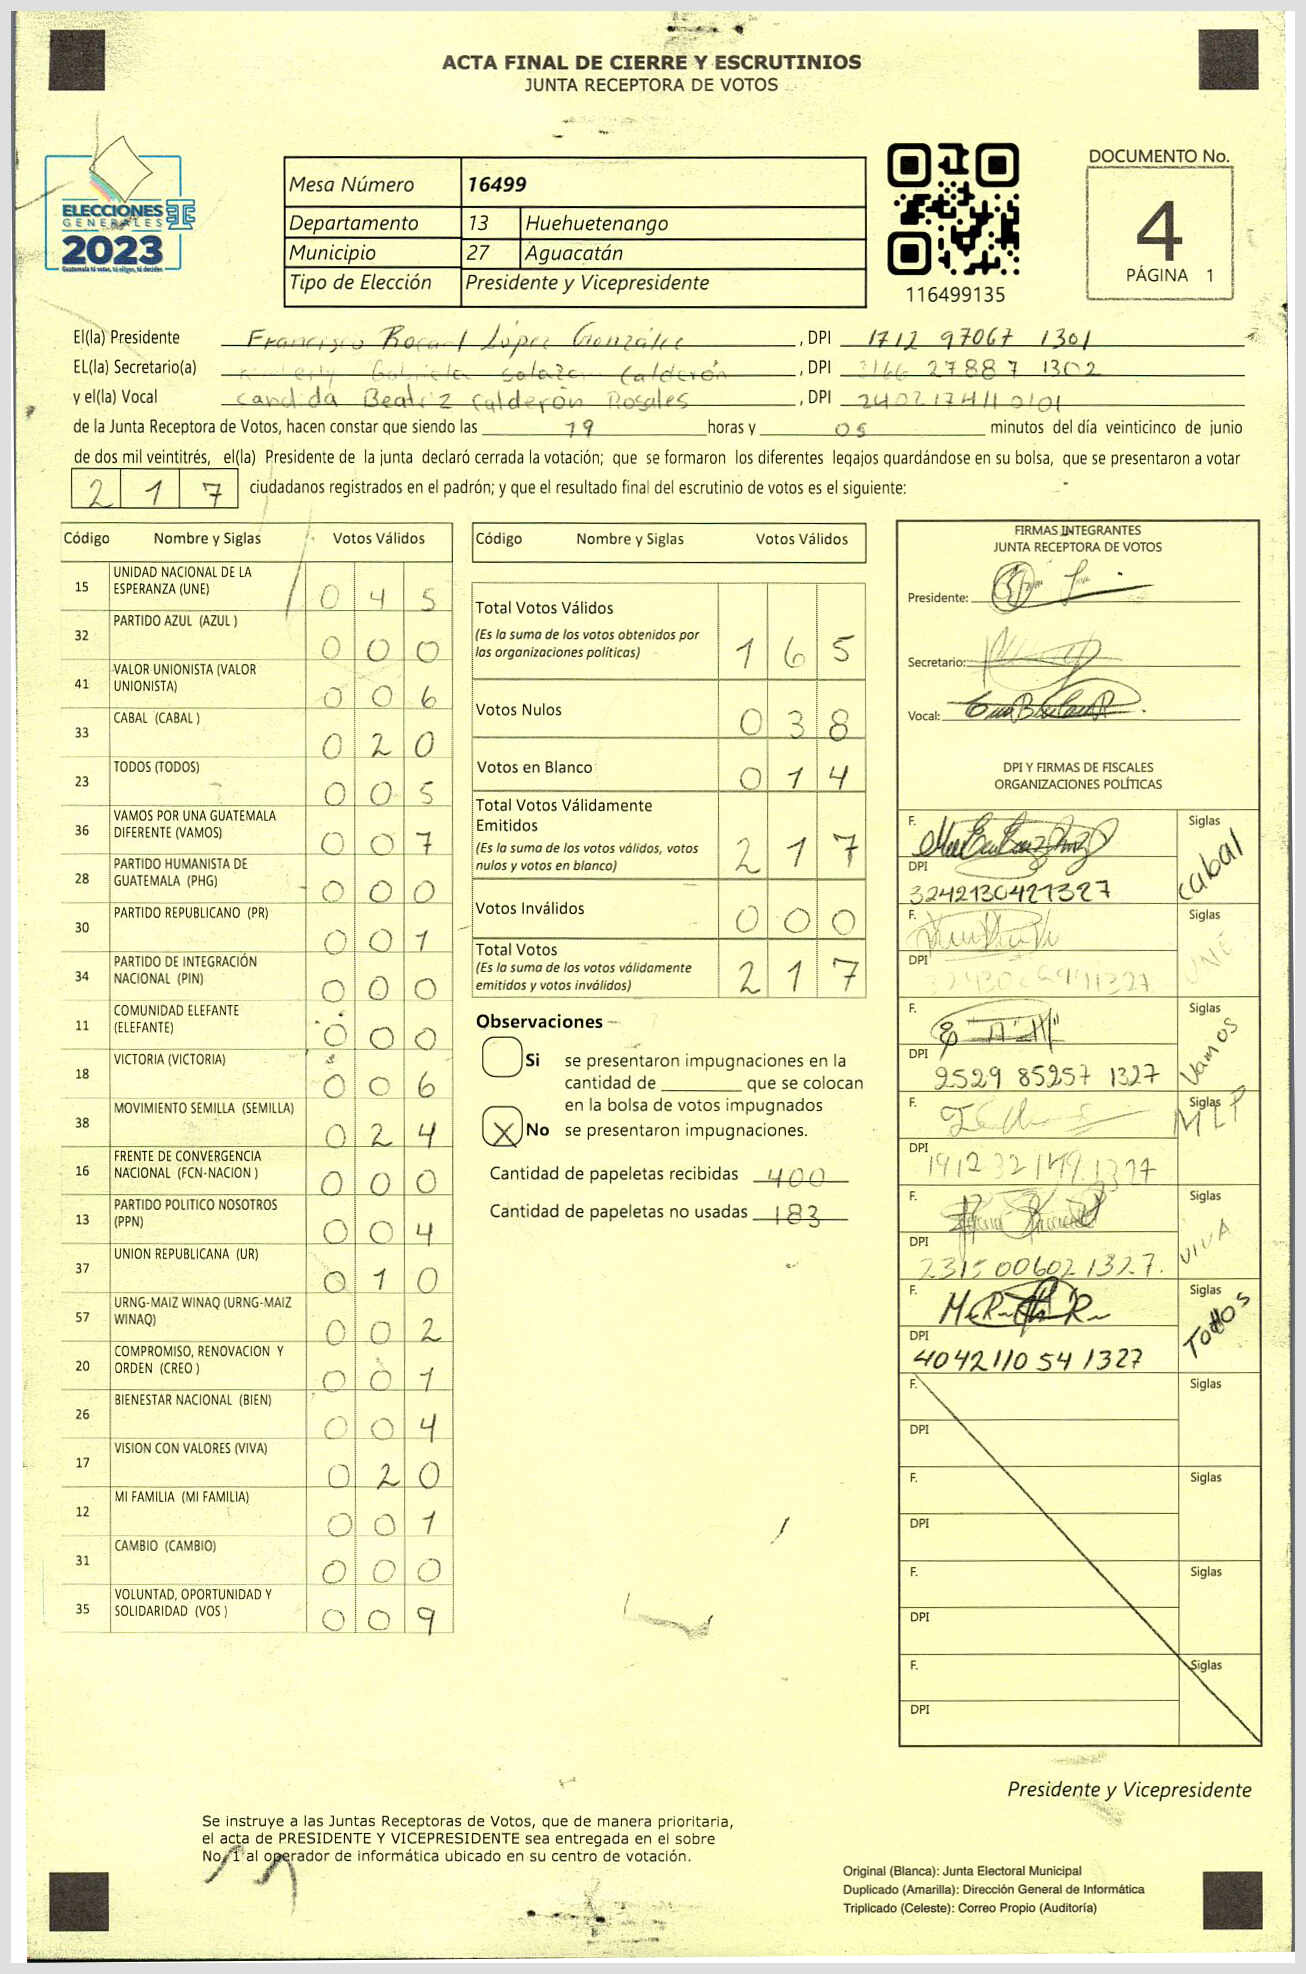 ACTA FINAL DE CIERRE Y ESCRUTINIOS
JUNTA RECEPTORA DE VOTOS
ELECCIONES
GENERALES
2023
Guatemala tú votas, tú eliges, tú decides
Mesa Número 16499
Departamento 13 Huehuetenango
Municipio 27 Aguacatán
Tipo de Elección Presidente y Vicepresidente
116499135
DOCUMENTO No.
4
PÁGINA 1
El(la) Presidente Francisco López González, DPI 1712 97067 1301
EL(la) Secretario(a) Gabriela Salazar Calderón, DPI 3166 27887 1302
y el(la) Vocal Candida Beatriz Calderón Rosales, DPI
de la Junta Receptora de Votos, hacen constar que siendo las 19 horas y 05 minutos del día veinticinco de junio
de dos mil veintitrés, el(la) Presidente de la junta declaró cerrada la votación; que se formaron los diferentes legajos guardándose en su bolsa, que se presentaron a votar
217 ciudadanos registrados en el padrón; y que el resultado final del escrutinio de votos es el siguiente:
Código Nombre y Siglas Votos Válidos
15 UNIDAD NACIONAL DE LA ESPERANZA (UNE) 045
32 PARTIDO AZUL (AZUL ) 000
41 VALOR UNIONISTA (VALOR UNIONISTA) 006
33 CABAL (CABAL ) 020
23 TODOS (TODOS) 005
36 VAMOS POR UNA GUATEMALA DIFERENTE (VAMOS) 007
28 PARTIDO HUMANISTA DE GUATEMALA (PHG) 000
30 PARTIDO REPUBLICANO (PR) 001
34 PARTIDO DE INTEGRACIÓN NACIONAL (PIN) 000
11 COMUNIDAD ELEFANTE (ELEFANTE) 000
18 VICTORIA (VICTORIA) 006
38 MOVIMIENTO SEMILLA (SEMILLA) 024
16 FRENTE DE CONVERGENCIA NACIONAL (FCN-NACION ) 000
13 PARTIDO POLITICO NOSOTROS (PPN) 004
37 UNION REPUBLICANA (UR) 010
57 URNG-MAIZ WINAQ (URNG-MAIZ WINAQ) 002
20 COMPROMISO, RENOVACION Y ORDEN (CREO ) 001
26 BIENESTAR NACIONAL (BIEN) 004
17 VISION CON VALORES (VIVA) 020
12 MI FAMILIA (MI FAMILIA) 001
31 CAMBIO (CAMBIO) 000
35 VOLUNTAD, OPORTUNIDAD Y SOLIDARIDAD (VOS ) 009
Código Nombre y Siglas Votos Válidos
Total Votos Válidos
(Es la suma de los votos obtenidos por
las organizaciones políticas) 165
Votos Nulos 038
Votos en Blanco 014
Total Votos Válidamente
Emitidos
(Es la suma de los votos válidos, votos
nulos y votos en blanco) 217
Votos Inválidos 000
Total Votos
(Es la suma de los votos válidamente
emitidos y votos inválidos) 217
Observaciones
Si se presentaron impugnaciones en la
cantidad de ________ que se colocan
en la bolsa de votos impugnados
X No se presentaron impugnaciones.
Cantidad de papeletas recibidas 400
Cantidad de papeletas no usadas 183
FIRMAS INTEGRANTES
JUNTA RECEPTORA DE VOTOS
Presidente:
Secretario:
Vocal:
DPI Y FIRMAS DE FISCALES
ORGANIZACIONES POLÍTICAS
F. Siglas Cabal
DPI 3242130421327
F. Siglas UNE
DPI
F. Siglas Vamos
DPI 2529 85257 1327
F. Siglas MLP
DPI
F. Siglas VIVA
DPI 2315 00602 1327.
F. Siglas Todos
DPI 4042110541327
F. Siglas
DPI
F. Siglas
DPI
F. Siglas
DPI
F. Siglas
DPI
Presidente y Vicepresidente
Se instruye a las Juntas Receptoras de Votos, que de manera prioritaria,
el acta de PRESIDENTE Y VICEPRESIDENTE sea entregada en el sobre
No. 1 al operador de informática ubicado en su centro de votación.
Original (Blanca): Junta Electoral Municipal
Duplicado (Amarilla): Dirección General de Informática
Triplicado (Celeste): Correo Propio (Auditoría)